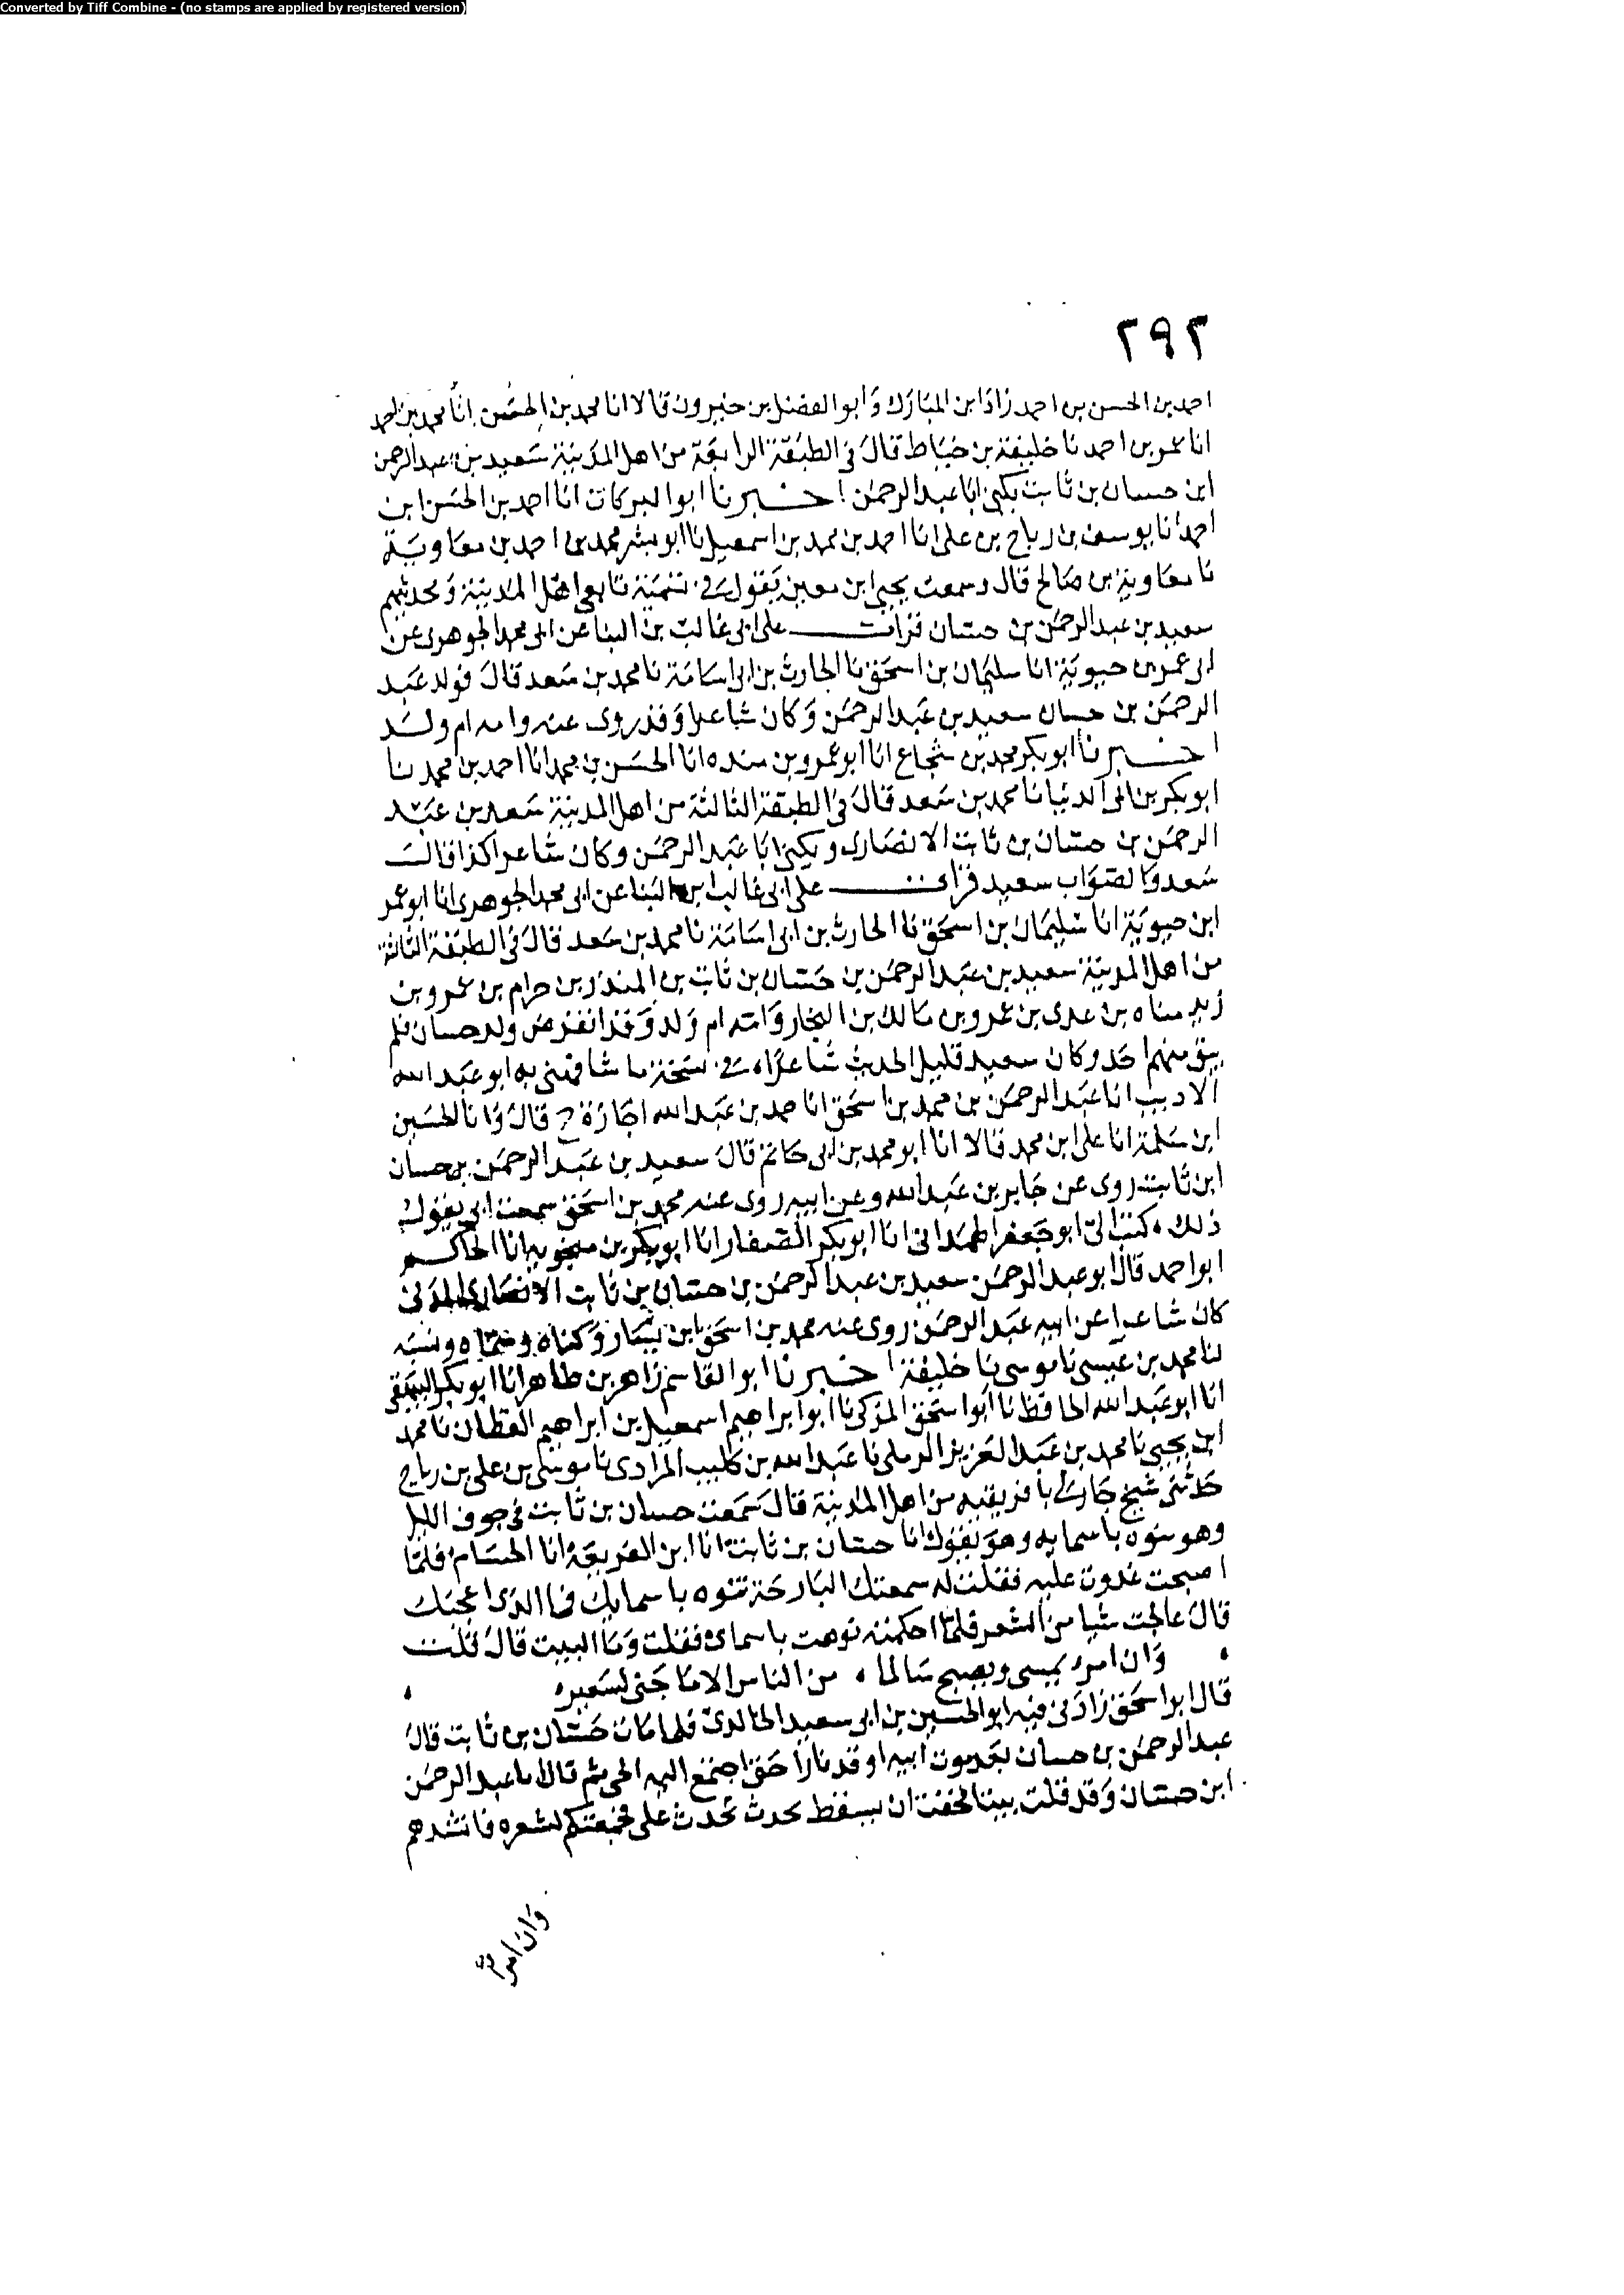 Converted by Tiff Combine - (no stamps are applied by registered version)
٢٩٢
احمد بن الحسن بن احمد زاد ابن المبارك وابو الفضل بن خيرون قالا انا محمد بن الحسن انا محمد بن احمد
انا عمر بن احمد نا خليفة بن خياط قال في الطبقة الرابعة من اهل المدينة سعيد بن عبد الرحمن
ابن حسان بن ثابت يكنى ابا عبد الرحمن اخبرنا ابو البركات انا احمد بن الحسن ابن
احمد انا يوسف بن رباح بن علي انا احمد بن محمد بن اسمعيل نا ابو بشر محمد بن احمد بن معاوية
نا معاوية بن صالح قال وسمعت يحيى ابن معين يقول في تسمية تابعي اهل المدينة ومحدثيهم
سعيد بن عبد الرحمن بن حسان قرات على ابي غالب بن البنا عن ابي محمد الجوهري عن
ابي عمر بن حيوية انا سليمان بن اسحق نا الحارث بن ابي اسامة نا محمد بن سعد قال فولد عبد
الرحمن بن حسان سعيد بن عبد الرحمن وكان شاعرا وقد روى عنه وامه ام ولد
اخبرنا ابو بكر محمد بن شجاع انا ابو عمرو بن منده انا الحسن بن محمد انا احمد بن محمد نا
ابو بكر بن ابي الدنيا نا محمد بن سعد قال في الطبقة الثالثة من اهل المدينة سعد بن عبد
الرحمن بن حسان بن ثابت الانصاري ويكنى ابا عبد الرحمن وكان شاعرا كذا قال
سعد والصواب سعيد قرات على ابي غالب ابن البنا عن ابي محمد الجوهري انا ابو عمر
ابن حيوية انا سليمان بن اسحق نا الحارث بن ابي اسامة نا محمد بن سعد قال في الطبقة الثالثة
من اهل المدينة سعيد بن عبد الرحمن بن حسان بن ثابت بن المنذر بن حرام بن عمرو بن
زيد مناه بن عدي بن عمرو بن مالك بن النجار وامه ام ولد وقد انقرض ولد حسان فلم
يبق منهم احد وكان سعيد قليل الحديث شاعرا، في نسخة ما شافهني به ابو عبد الله
الاديب انا عبد الرحمن بن محمد بن اسحق انا حمد بن عبد الله اجازة ح قال وانا الحسين
ابن سلمة انا علي ابن محمد قالا انا ابو محمد بن ابي حاتم قال سعيد بن عبد الرحمن بن حسان
ابن ثابت روى عن جابر بن عبد الله وعن ابيه روى عنه محمد بن اسحق سمعت ابي يقول
ذلك، كتب الي ابو جعفر الهمداني انا ابو بكر الصفار انا ابو بكر بن منجويه انا الحاكم
ابو احمد قال ابو عبد الرحمن سعيد بن عبد الرحمن بن حسان بن ثابت الانصاري المدني
كان شاعرا عن ابيه عبد الرحمن روى عنه محمد بن اسحق ابن يسار وكناه وسماه ونسبه
لنا محمد بن عيسى نا موسى نا خليفة اخبرنا ابو القاسم زاهر بن طاهر انا ابو بكر البيهقي
انا ابو عبد الله الحافظ نا ابو اسحق المزكي نا ابو ابراهيم اسمعيل بن ابراهيم القطان نا محمد
ابن يحيى نا محمد بن عبد العزيز الرملي نا عبد الله بن كليب المرادي نا موسى بن علي بن رباح
حدثني شيخ جار لي بافريقيه من اهل المدينة قال سمعت حسان بن ثابت في جوف الليل
وهو ينوه باسمايه وهو يقول انا حسان بن ثابت انا ابن الفريعة انا الحسام فلما
اصبحت غدوت عليه فقلت له سمعتك البارحة تنوه باسمايك فما الذي اعجبك
قال عالجت شيا من الشعر فلما احكمته نوهت باسماي فقلت وما البيت قال قلت
وان امرء يمسي ويصبح سالما، من الناس الا ما جنى لسعيد،
قال ابو اسحق زادني فيه ابو الحسين بن ابي سعيد الخالدي فلما مات حسان بن ثابت قال
عبد الرحمن بن حسان بعد موت ابيه اوقد نارا حتى اجتمع اليه الحي ثم قال انا عبد الرحمن
ابن حسان وقد قلت بيتا فخفت ان يسقط بحدث يحدث علي فجمعتكم لتسمعوه فانشدهم
وان امرء